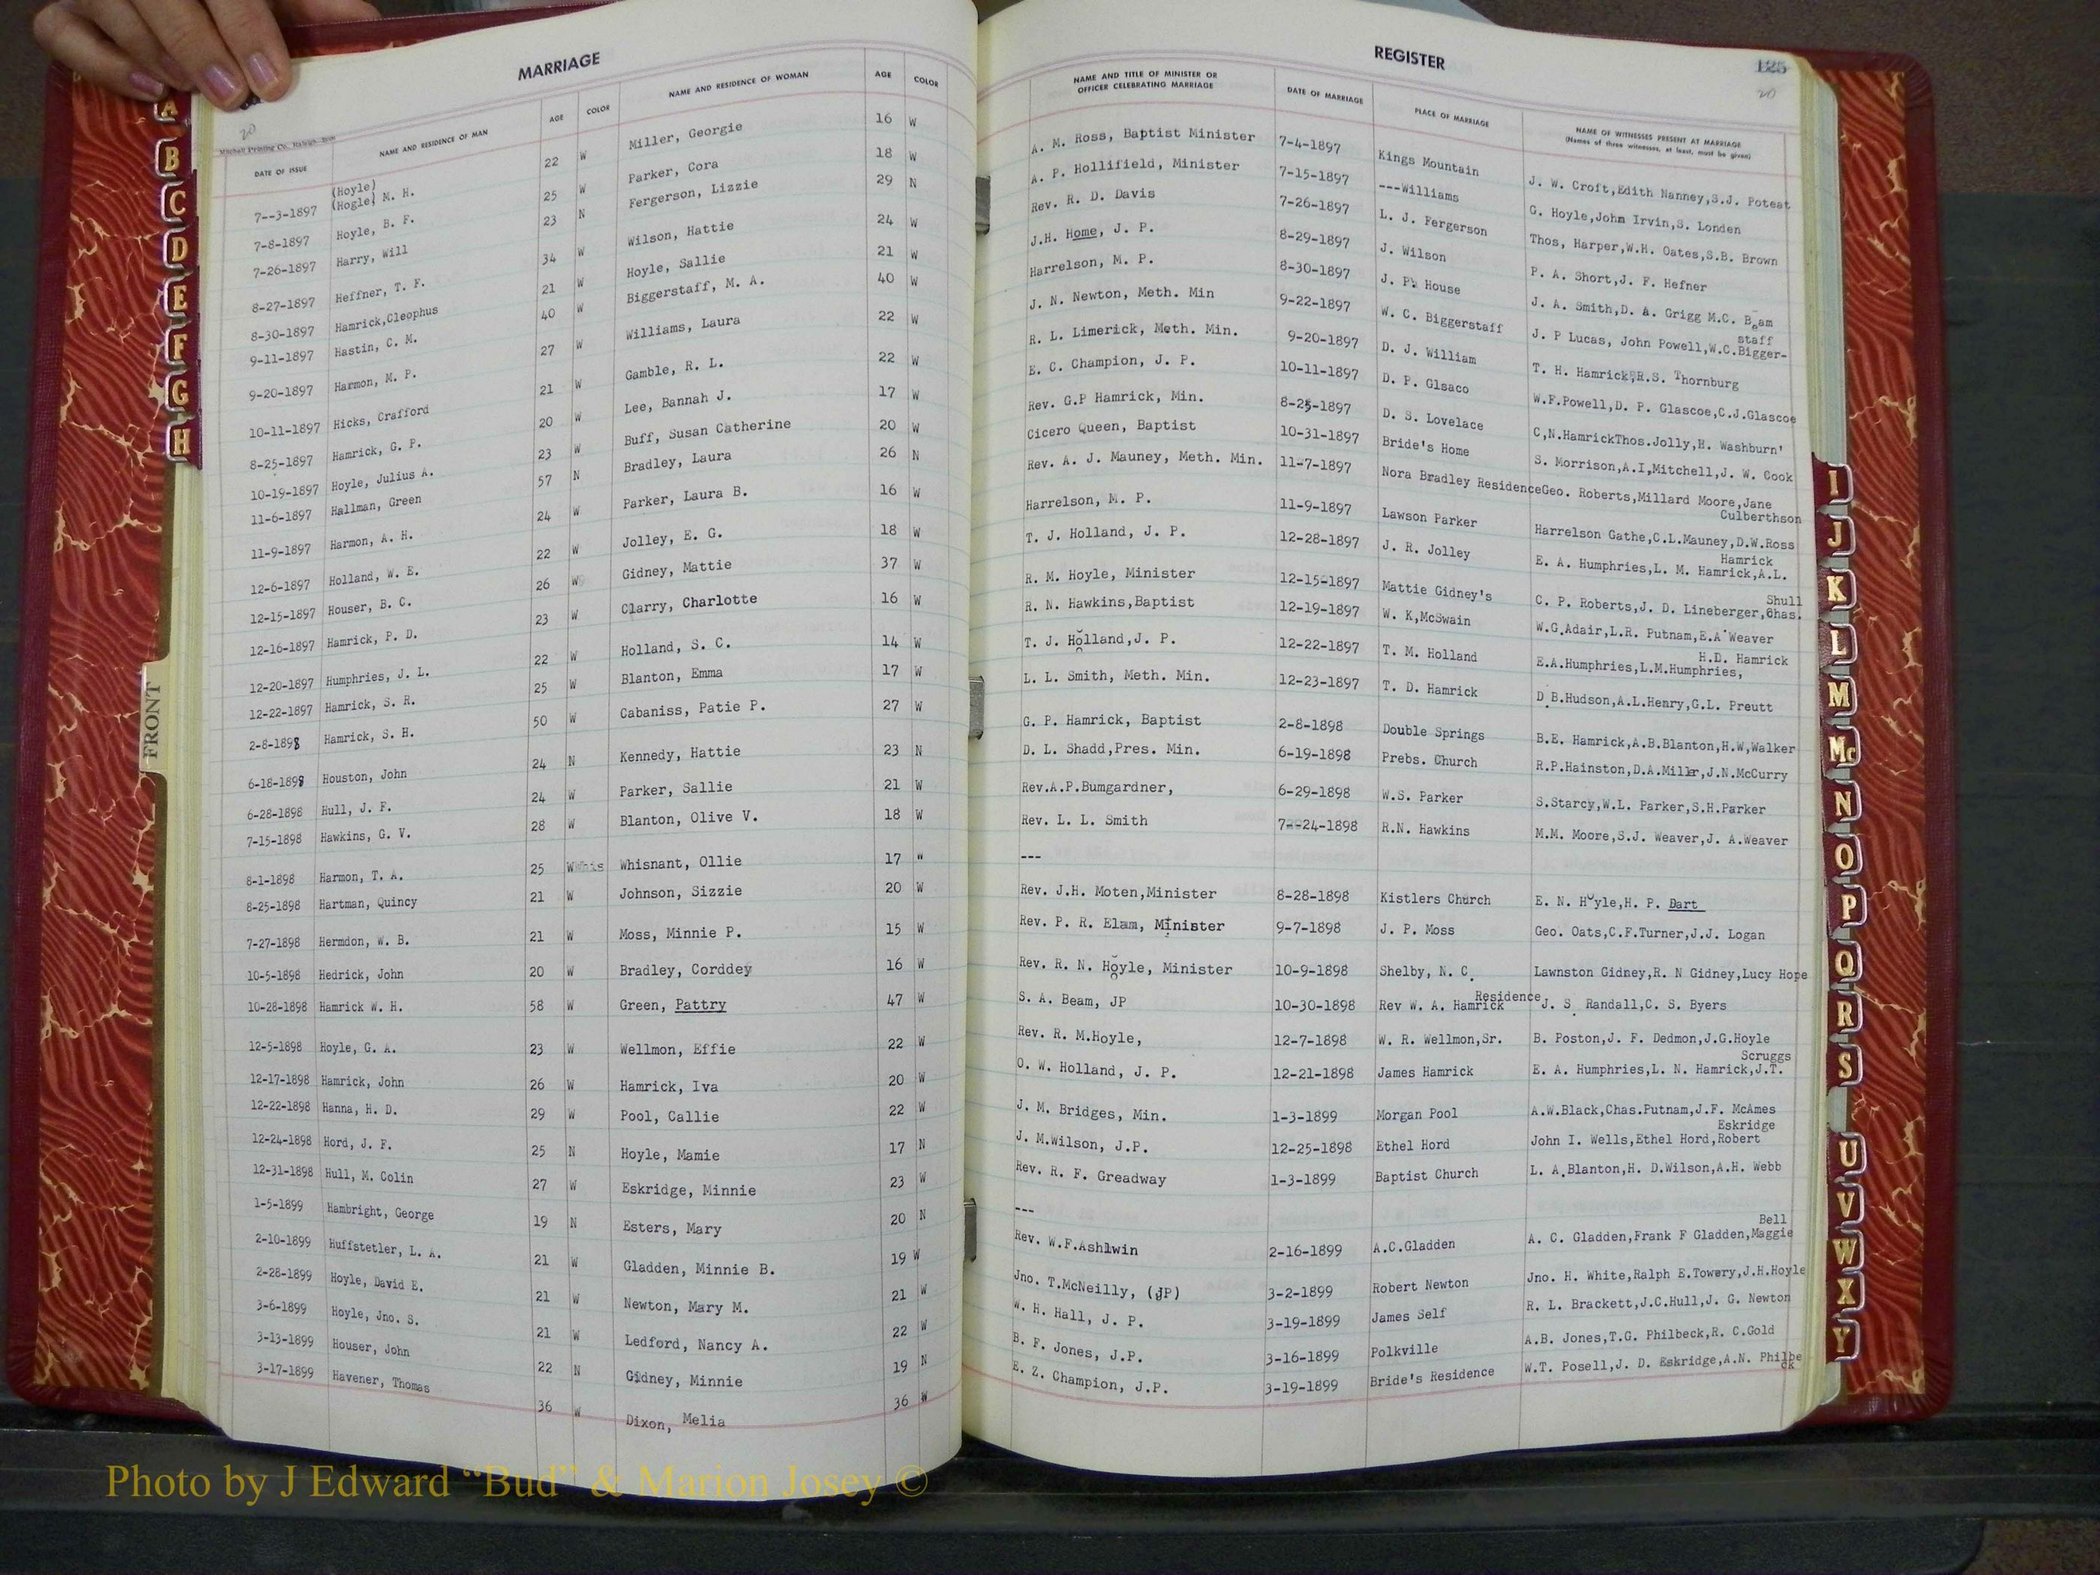 MARRIAGE
20
Mitchell Printing Co., Raleigh,
DATE OF ISSUE NAME AND RESIDENCE OF MAN AGE COLOR NAME AND RESIDENCE OF WOMAN AGE COLOR
(Hoyle)
7--3-1897 (Hogle) M. H. 22 W Miller, Georgie 16 W
7-8-1897 Hoyle, B. F. 25 W Parker, Cora 18 W
7-26-1897 Harry, Will 23 N Fergerson, Lizzie 29 N
8-27-1897 Heffner, T. F. 34 W Wilson, Hattie 24 W
8-30-1897 Hamrick,Cleophus 21 W Hoyle, Sallie 21 W
9-11-1897 Hastin, C. M. 40 W Biggerstaff, M. A. 40 W
9-20-1897 Harmon, M. P. 27 W Williams, Laura 22 W
10-11-1897 Hicks, Crafford 21 W Gamble, R. L. 22 W
8-25-1897 Hamrick, G. P. 20 W Lee, Bannah J. 17 W
10-19-1897 Hoyle, Julius A. 23 W Buff, Susan Catherine 20 W
11-6-1897 Hallman, Green 57 N Bradley, Laura 26 N
11-9-1897 Harmon, A. H. 24 W Parker, Laura B. 16 W
12-6-1897 Holland, W. E. 22 W Jolley, E. G. 18 W
12-15-1897 Houser, B. C. 26 W Gidney, Mattie 37 W
12-16-1897 Hamrick, P. D. 23 W Clarry, Charlotte 16 W
12-20-1897 Humphries, J. L. 22 W Holland, S. C. 14 W
12-22-1897 Hamrick, S. R. 25 W Blanton, Emma 17 W
2-8-1898 Hamrick, S. H. 50 W Cabaniss, Patie P. 27 W
6-18-1898 Houston, John 24 N Kennedy, Hattie 23 N
6-28-1898 Hull, J. F. 24 W Parker, Sallie 21 W
7-15-1898 Hawkins, G. V. 28 W Blanton, Olive V. 18 W
8-1-1898 Harmon, T. A. 25 W Whisnant, Ollie 17 W
8-25-1898 Hartman, Quincy 21 W Johnson, Sizzie 20 W
7-27-1898 Hermdon, W. B. 21 W Moss, Minnie P. 15 W
10-5-1898 Hedrick, John 20 W Bradley, Corddey 16 W
10-28-1898 Hamrick W. H. 58 W Green, Pattry 47 W
12-5-1898 Hoyle, G. A. 23 W Wellmon, Effie 22 W
12-17-1898 Hamrick, John 26 W Hamrick, Iva 20 W
12-22-1898 Hanna, H. D. 29 W Pool, Callie 22 W
12-24-1898 Hord, J. F. 25 N Hoyle, Mamie 17 N
12-31-1898 Hull, M. Colin 27 W Eskridge, Minnie 23 W
1-5-1899 Hambright, George 19 N Esters, Mary 20 N
2-10-1899 Huffstetler, L. A. 21 W Gladden, Minnie B. 19 W
2-28-1899 Hoyle, David E. 21 W Newton, Mary M. 21 W
3-6-1899 Hoyle, Jno. S. 21 W Ledford, Nancy A. 22 W
3-13-1899 Houser, John 22 N Gidney, Minnie 19 N
3-17-1899 Havener, Thomas 36 W Dixon, Melia 36 W
REGISTER
125
20
NAME AND TITLE OF MINISTER OR OFFICER CELEBRATING MARRIAGE DATE OF MARRIAGE PLACE OF MARRIAGE NAME OF WITNESSES PRESENT AT MARRIAGE
(Names of three witnesses, at least, must be given)
A. M. Ross, Baptist Minister 7-4-1897 Kings Mountain J. W. Croft,Edith Nanney,S.J. Poteat
A. P. Hollifield, Minister 7-15-1897 ---Williams G. Hoyle,John Irvin,S. Londen
Rev. R. D. Davis 7-26-1897 L. J. Fergerson Thos, Harper,W.H. Oates,S.B. Brown
J.H. Home, J. P. 8-29-1897 J. Wilson P. A. Short,J. F. Hefner
Harrelson, M. P. 8-30-1897 J. P. House J. A. Smith,D. A. Grigg M.C. Beam
J. N. Newton, Meth. Min 9-22-1897 W. C. Biggerstaff J. P Lucas, John Powell,W.C.Bigger-
staff
R. L. Limerick, Meth. Min. 9-20-1897 D. J. William T. H. Hamrick,R.S. Thornburg
E. C. Champion, J. P. 10-11-1897 D. P. Glsaco W.F.Powell,D. P. Glascoe,C.J.Glascoe
Rev. G.P Hamrick, Min. 8-25-1897 D. S. Lovelace C,N.HamrickThos.Jolly,H. Washburn'
Cicero Queen, Baptist 10-31-1897 Bride's Home S. Morrison,A.I,Mitchell,J. W. Cook
Rev. A. J. Mauney, Meth. Min. 11-7-1897 Nora Bradley Residence Geo. Roberts,Millard Moore,Jane
Culberthson
Harrelson, M. P. 11-9-1897 Lawson Parker Harrelson Gathe,C.L.Mauney,D.W.Ross
T. J. Holland, J. P. 12-28-1897 J. R. Jolley E. A. Humphries,L. M. Hamrick,A.L.
Hamrick
R. M. Hoyle, Minister 12-15-1897 Mattie Gidney's C. P. Roberts,J. D. Lineberger,Chas.
Shull
R. N. Hawkins,Baptist 12-19-1897 W. K,McSwain W.G.Adair,L.R. Putnam,E.A Weaver
T. J. Holland,J. P. 12-22-1897 T. M. Holland E.A.Humphries,L.M.Humphries,
H.D. Hamrick
L. L. Smith, Meth. Min. 12-23-1897 T. D. Hamrick D.B.Hudson,A.L.Henry,G.L. Preutt
G. P. Hamrick, Baptist 2-8-1898 Double Springs B.E. Hamrick,A.B.Blanton,H.W,Walker
D. L. Shadd,Pres. Min. 6-19-1898 Prebs. Church R.P.Hainston,D.A.Miller,J.N.McCurry
Rev.A.P.Bumgardner, 6-29-1898 W.S. Parker S.Starcy,W.L. Parker,S.H.Parker
Rev. L. L. Smith 7--24-1898 R.N. Hawkins M.M. Moore,S.J. Weaver,J. A.Weaver
---
Rev. J.H. Moten,Minister 8-28-1898 Kistlers Church E. N. Hoyle,H. P. Dart
Rev. P. R. Elam, Minister 9-7-1898 J. P. Moss Geo. Oats,C.F.Turner,J.J. Logan
Rev. R. N. Hoyle, Minister 10-9-1898 Shelby, N. C. Lawnston Gidney,R. N Gidney,Lucy Hope
S. A. Beam, JP 10-30-1898 Rev W. A. Hamrick Residence J. S. Randall,C. S. Byers
Rev. R. M.Hoyle, 12-7-1898 W. R. Wellmon,Sr. B. Poston,J. F. Dedmon,J.G.Hoyle
O. W. Holland, J. P. 12-21-1898 James Hamrick E. A. Humphries,L. N. Hamrick,J.T.
Scruggs
J. M. Bridges, Min. 1-3-1899 Morgan Pool A.W.Black,Chas.Putnam,J.F. McAmes
J. M.Wilson, J.P. 12-25-1898 Ethel Hord John I. Wells,Ethel Hord,Robert
Eskridge
Rev. R. F. Greadway 1-3-1899 Baptist Church L. A.Blanton,H. D.Wilson,A.H. Webb
---
Rev. W.F.Ashlwin 2-16-1899 A.C.Gladden A. C. Gladden,Frank F Gladden,Maggie
Bell
Jno. T.McNeilly, (JP) 3-2-1899 Robert Newton Jno. H. White,Ralph E.Towery,J.H.Hoyle
W. H. Hall, J. P. 3-19-1899 James Self R. L. Brackett,J.C.Hull,J. G. Newton
B. F. Jones, J.P. 3-16-1899 Polkville A.B. Jones,T.G. Philbeck,R. C.Gold
E. Z. Champion, J.P. 3-19-1899 Bride's Residence W.T. Posell,J. D. Eskridge,A.N. Philbeck
A
B
C
D
E
F
G
H
FRONT
I
J
K
L
M
Mc
N
O
P
Q
R
S
U
V
W
X
Y
Photo by J Edward “Bud” & Marion Josey ©